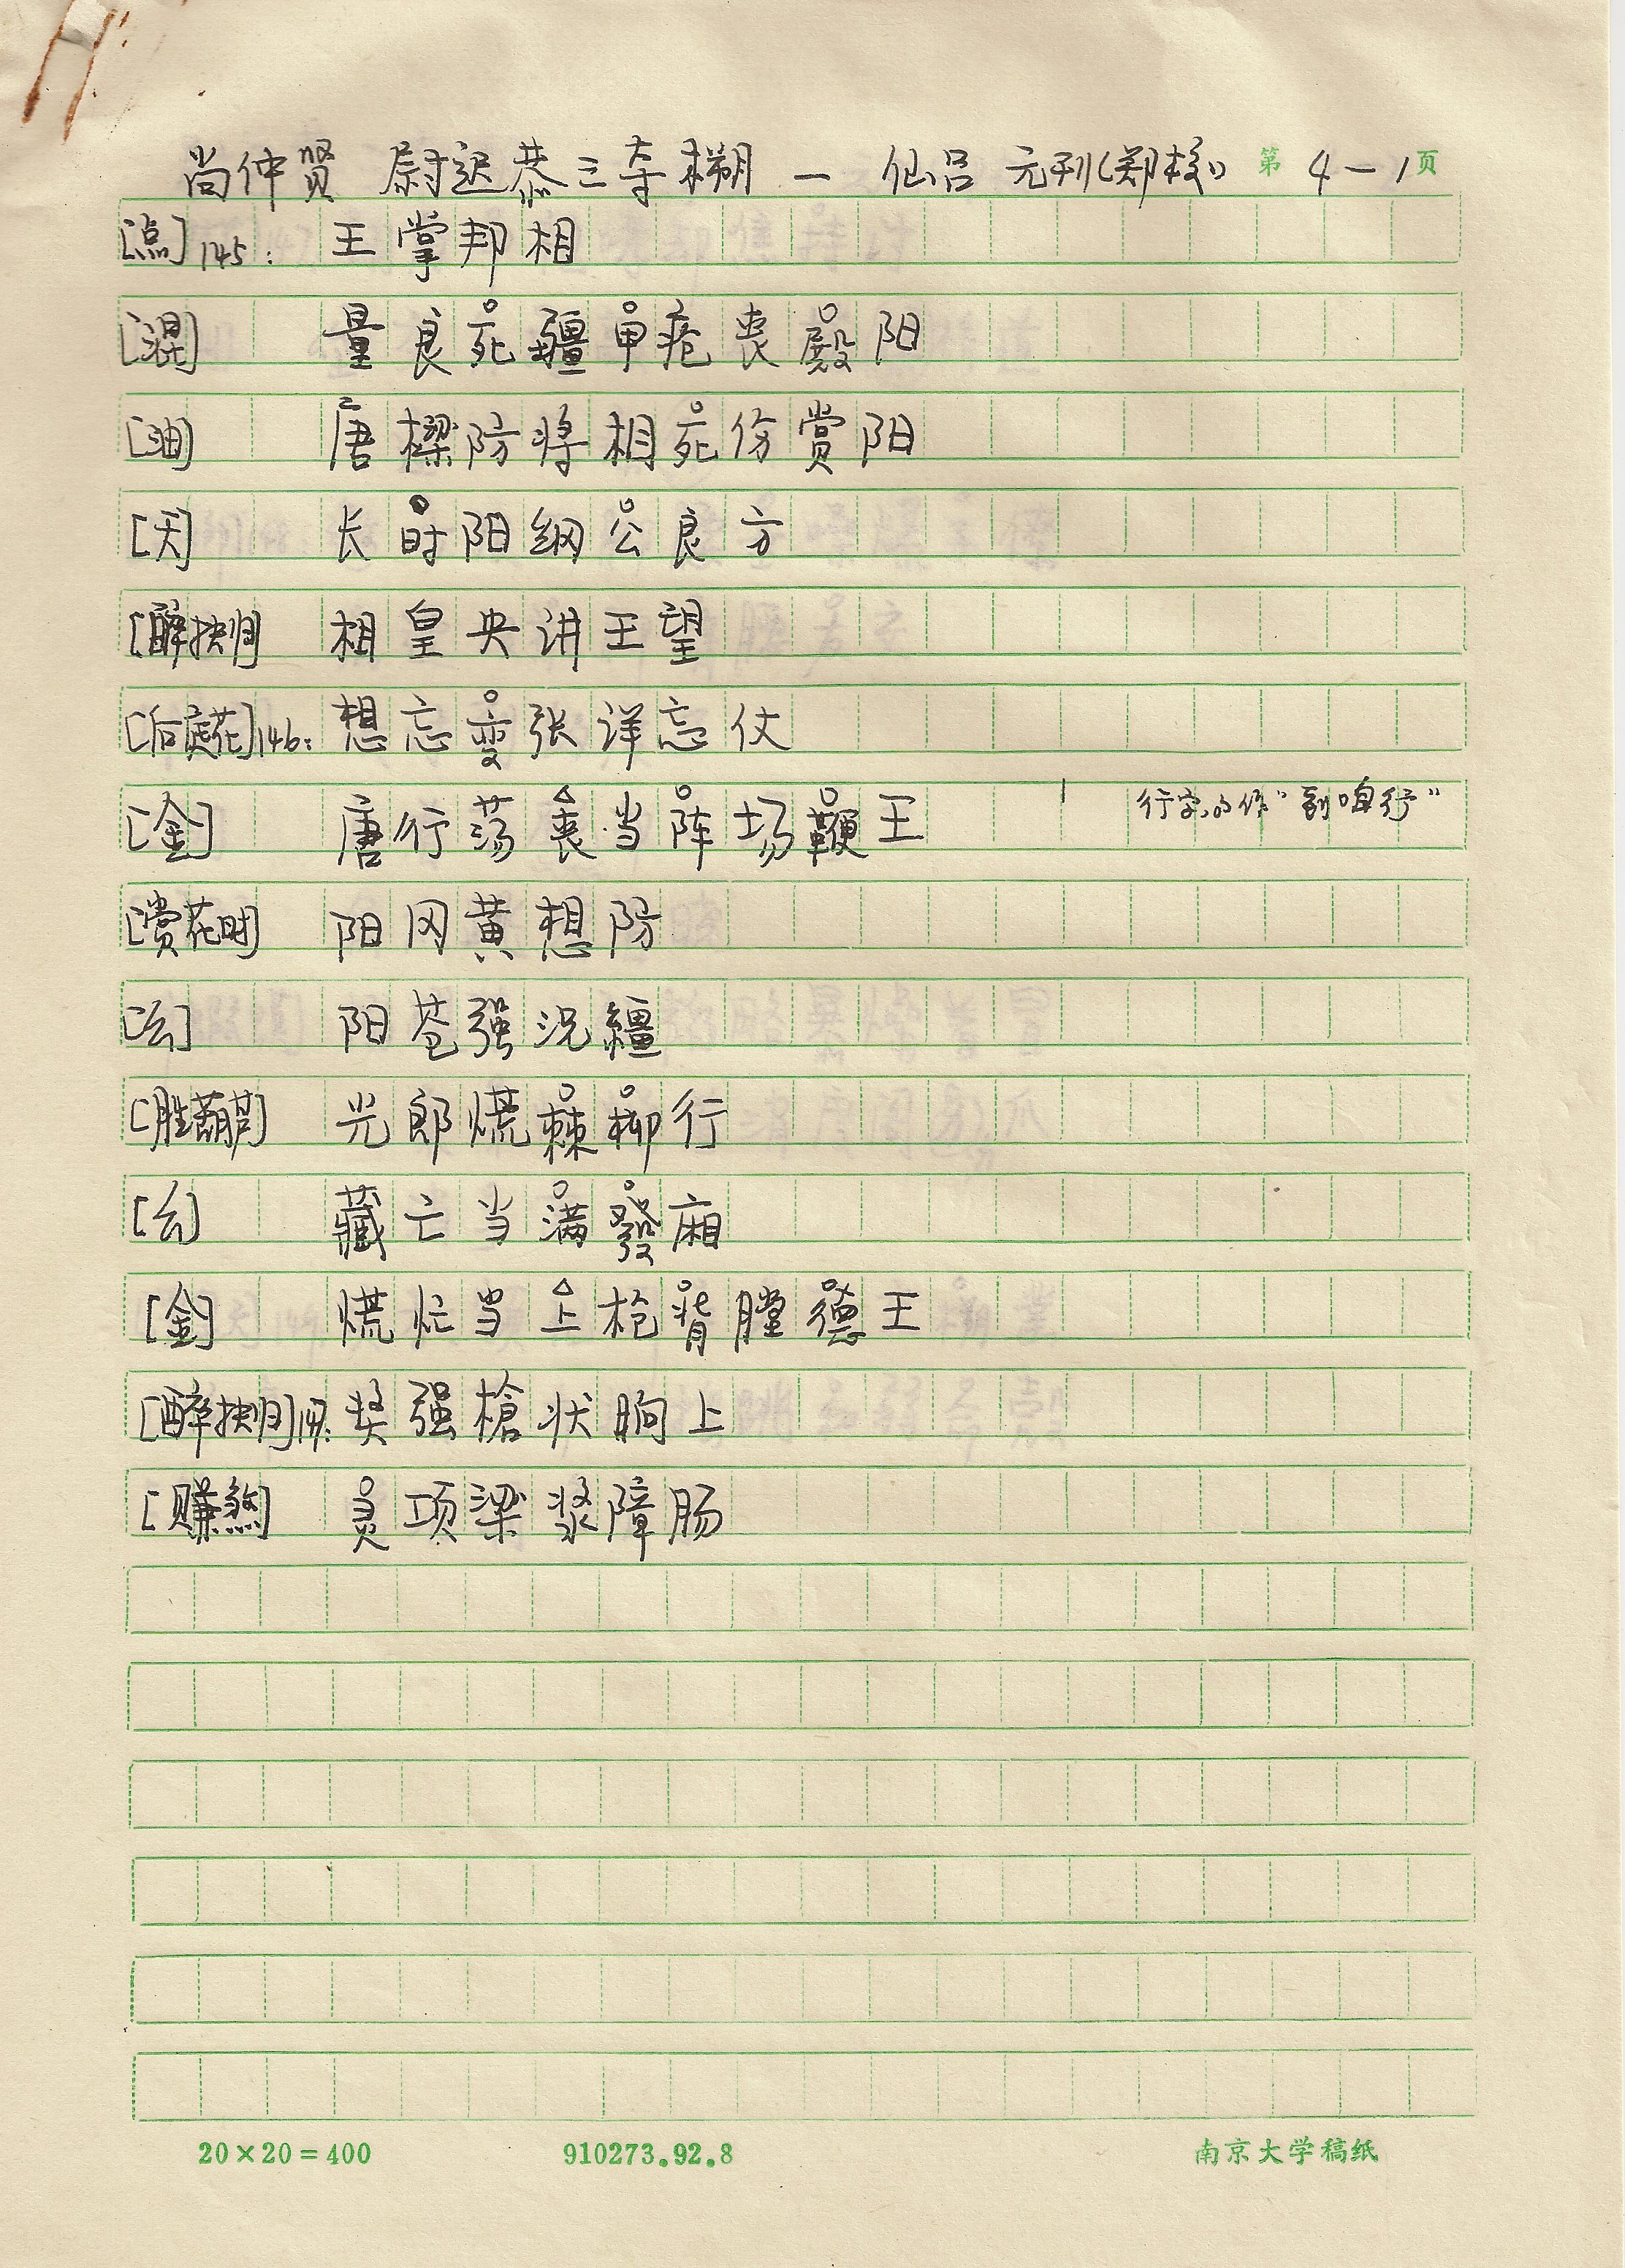 尚仲贤 尉迟恭三夺槊 一 仙吕 元刊(郑校) 第 4-1 页
[点]145: 王掌邦相
[混] 量良死疆甲疮丧殿阳
[油] 唐樑防将相死伤赏阳
[天] 长时阳纲公良方
[醉扶归] 相皇央讲王望
[后庭花]146: 想忘变张详忘仗
[金] 唐行荡丧当阵场鞭王 行字,的作"到咱行"
[赏花时] 阳冈黄想防
[幺] 阳苍强况繮
[胜葫芦] 光郎慌棘柳行
[幺] 藏亡当满發廂
[金] 慌忙当上枪背膛德王
[醉扶归]147: 奖强槍状胸上
[赚煞] 灵项梁浆障肠
20×20=400 910273.92.8 南京大学稿纸